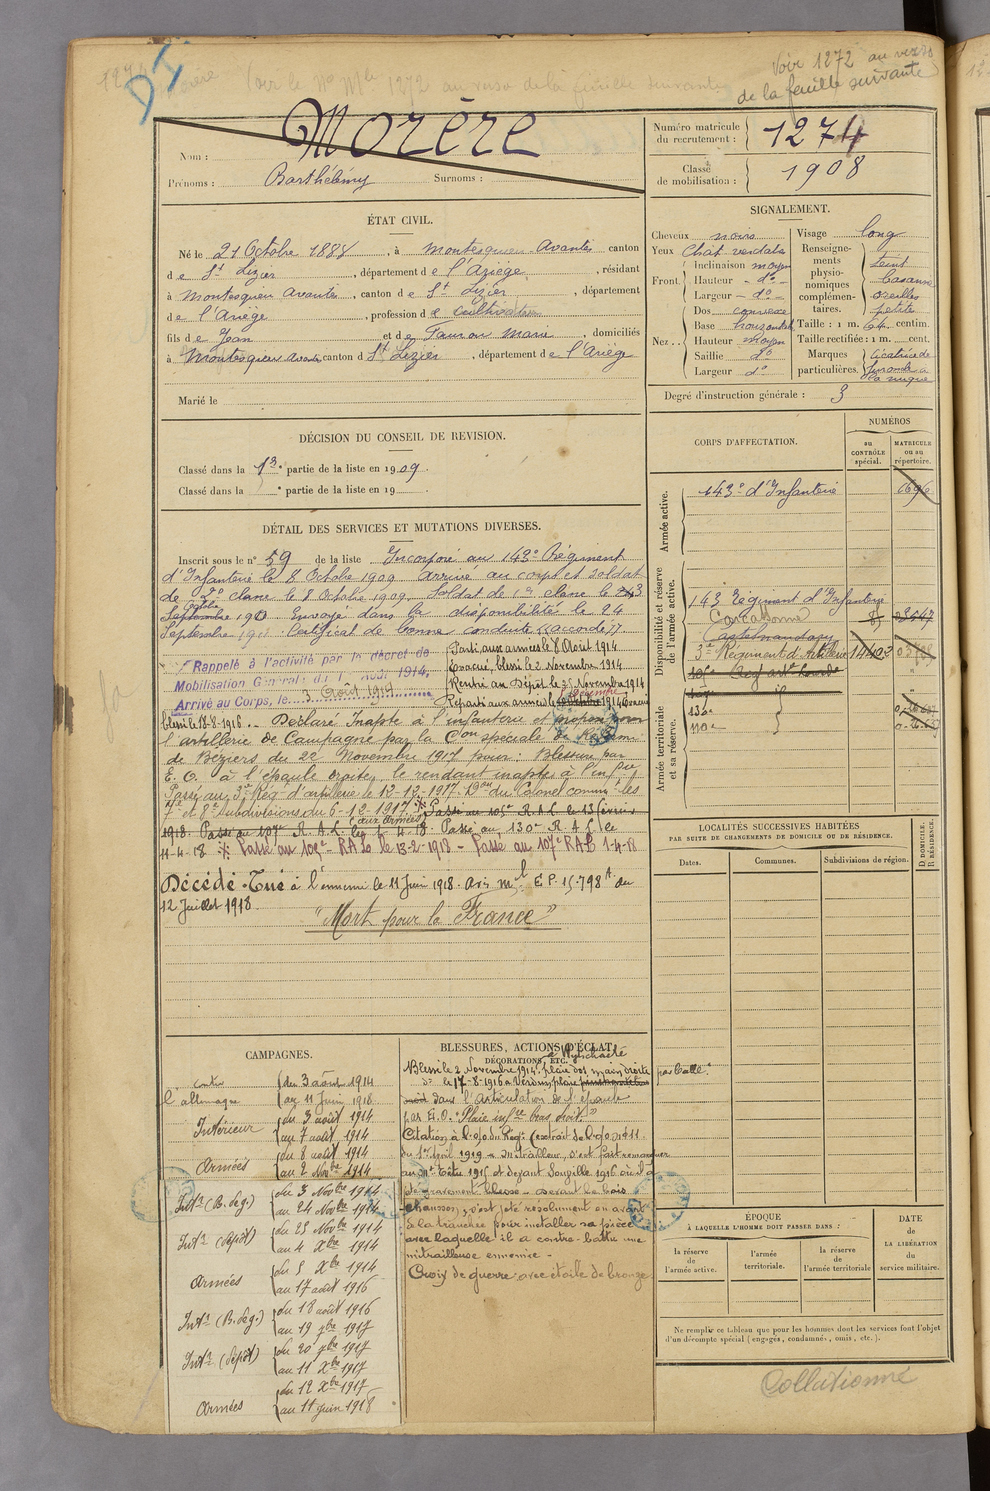 Voir 1272 au verso
de la feuille suivante
Voir le No Mle 1272 au verso de la feuille suivante
DI
Nom : Morère
Prénoms : Barthélemy Surnoms :
Numéro matricule du recrutement : 1274
Classe de mobilisation : 1908
ÉTAT CIVIL.
Né le 21 Octobre 1888, à Montesquieu-Avantès canton
de St Lizier, département de l'Ariège, résidant
à Montesquieu Avantès, canton de St Lizier, département
de l'Ariège, profession de cultivateur
fils de Jean et de Faur ou Marie, domiciliés
à Montesquieu Avantès canton de St Lizier, département de l'Ariège
Marié le
SIGNALEMENT.
Cheveux noirs
Yeux Chât verdatre
Front. Inclinaison moyen
Hauteur - do -
Largeur - do -
Nez. Dos convexe
Base horizontale
Hauteur moyen
Saillie do
Largeur do
Visage long
Renseignements physionomiques complémentaires. teint basané oreilles petites
Taille : 1 m. 64 centim.
Taille rectifiée : 1 m. cent.
Marques particulières. Cicatrice de furoncle à la nuque
Degré d'instruction générale : 3
DÉCISION DU CONSEIL DE REVISION.
Classé dans la 1re partie de la liste en 1909.
Classé dans la e partie de la liste en 19
CORPS D'AFFECTATION.
NUMÉROS
au CONTRÔLE spécial.
MATRICULE ou au répertoire.
Armée active.
143e d'Infanterie 1696
Disponibilité et réserve de l'armée active.
143 Régiment d'Infanterie
Carcassonne
Castelnaudary
3e Régiment d'Artillerie
Armée territoriale et sa réserve.
130e
DÉTAIL DES SERVICES ET MUTATIONS DIVERSES.
Inscrit sous le no 59 de la liste Incorporé au 143e Régiment
d'Infanterie le 8 Octobre 1909. Arrivé au corps et soldat
de 2e classe le 8 Octobre 1909. Soldat de 1re classe le
Envoyé dans la disponibilité le 24
Septembre 1911 Certificat de bonne conduite "accordé".
Rappelé à l'activité par le décret de
Mobilisation Générale du 1 Août 1914,
Arrivé au Corps, le 3 Août 1914
Parti aux armées le 8 Août 1914
Evacué, blessé le 2 Novembre 1914
Rentré au Dépôt le 25 Novembre 1914
Reparti aux armées le Décembre 1914 Evacué
blessé le 18-8-1916. Déclaré Inapte à l'infanterie et proposé pour
l'artillerie de Campagne par la Con spéciale de Réforme
de Béziers du 22 Novembre 1917 pour : Blessure par
E. O. à l'épaule droite, le rendant inapte à l'infrie
Passé au 3e Rég. d'artillerie le 12-12-1917. Don du Colonel commt les
7e et 8e Subdivisions du 6-12-1917. Passé au 105e R.A.L. le 13 février
1918. Passé au 107e R.A.L. (aux armées) le 1-4-18. Passé au 130e R.A.L. le
11-4-18 Passé au 105e RALo le 13-2-1918 - Passé au 107e RAL 1-4-18
Décédé - Tué à l'ennemi le 11 Juin 1918. Avis ml E.P. 15.798 du
12 Juillet 1918.
"Mort pour la France"
LOCALITÉS SUCCESSIVES HABITÉES
PAR SUITE DE CHANGEMENTS DE DOMICILE OU DE RÉSIDENCE.
Dates.
Communes.
Subdivisions de région.
D. DOMICILE. R. RÉSIDENCE.
CAMPAGNES.
contre l'allemagne du 3 août 1914
au 11 Juin 1918
Intérieur du 3 août 1914
au 7 août 1914
Armées du 8 août 1914
au 2 Novbre 1914
Intr (B. de g.) du 3 Novbre 1914
au 24 Novbre 1914
Intr (dépôt) du 25 Novbre 1914
au 4 Xbre 1914
Armées du 5 Xbre 1914
au 17 août 1916
Intr (B. de g.) du 18 août 1916
au 19 9bre 1917
Intr (dépôt) du 20 9bre 1917
au 11 Xbre 1917
Armées du 12 Xbre 1917
au 11 Juin 1918
BLESSURES, ACTIONS D'ÉCLAT,
DÉCORATIONS, ETC.
à Wytschaete
Blessé le 2 Novembre 1914. plaie dos main droite par balle.
do le 17-8-1916 à Verdun, plaie
dans l'articulation de l'épaule
par E.O. "Plaie infre bras droit."
Citation à l'o/o du Régt (extrait de l'o/o no 411
du 1er avril 1919 - mitrailleur, s'est fait remarquer
au Mt Têtu 1915 et devant Souville 1916 où il a
été gravement blessé - devant le bois
chausson, s'est jeté résolument en avant
de la tranchée pour installer sa pièce
avec laquelle il a contre-battu une
mitrailleuse ennemie -
Croix de guerre avec étoile de bronze
ÉPOQUE
À LAQUELLE L'HOMME DOIT PASSER DANS :
la réserve de l'armée active.
l'armée territoriale.
la réserve de l'armée territoriale
DATE de LA LIBÉRATION du service militaire.
Ne remplir ce tableau que pour les hommes dont les services font l'objet
d'un décompte spécial (engagés, condamnés, omis, etc.).
Collationné